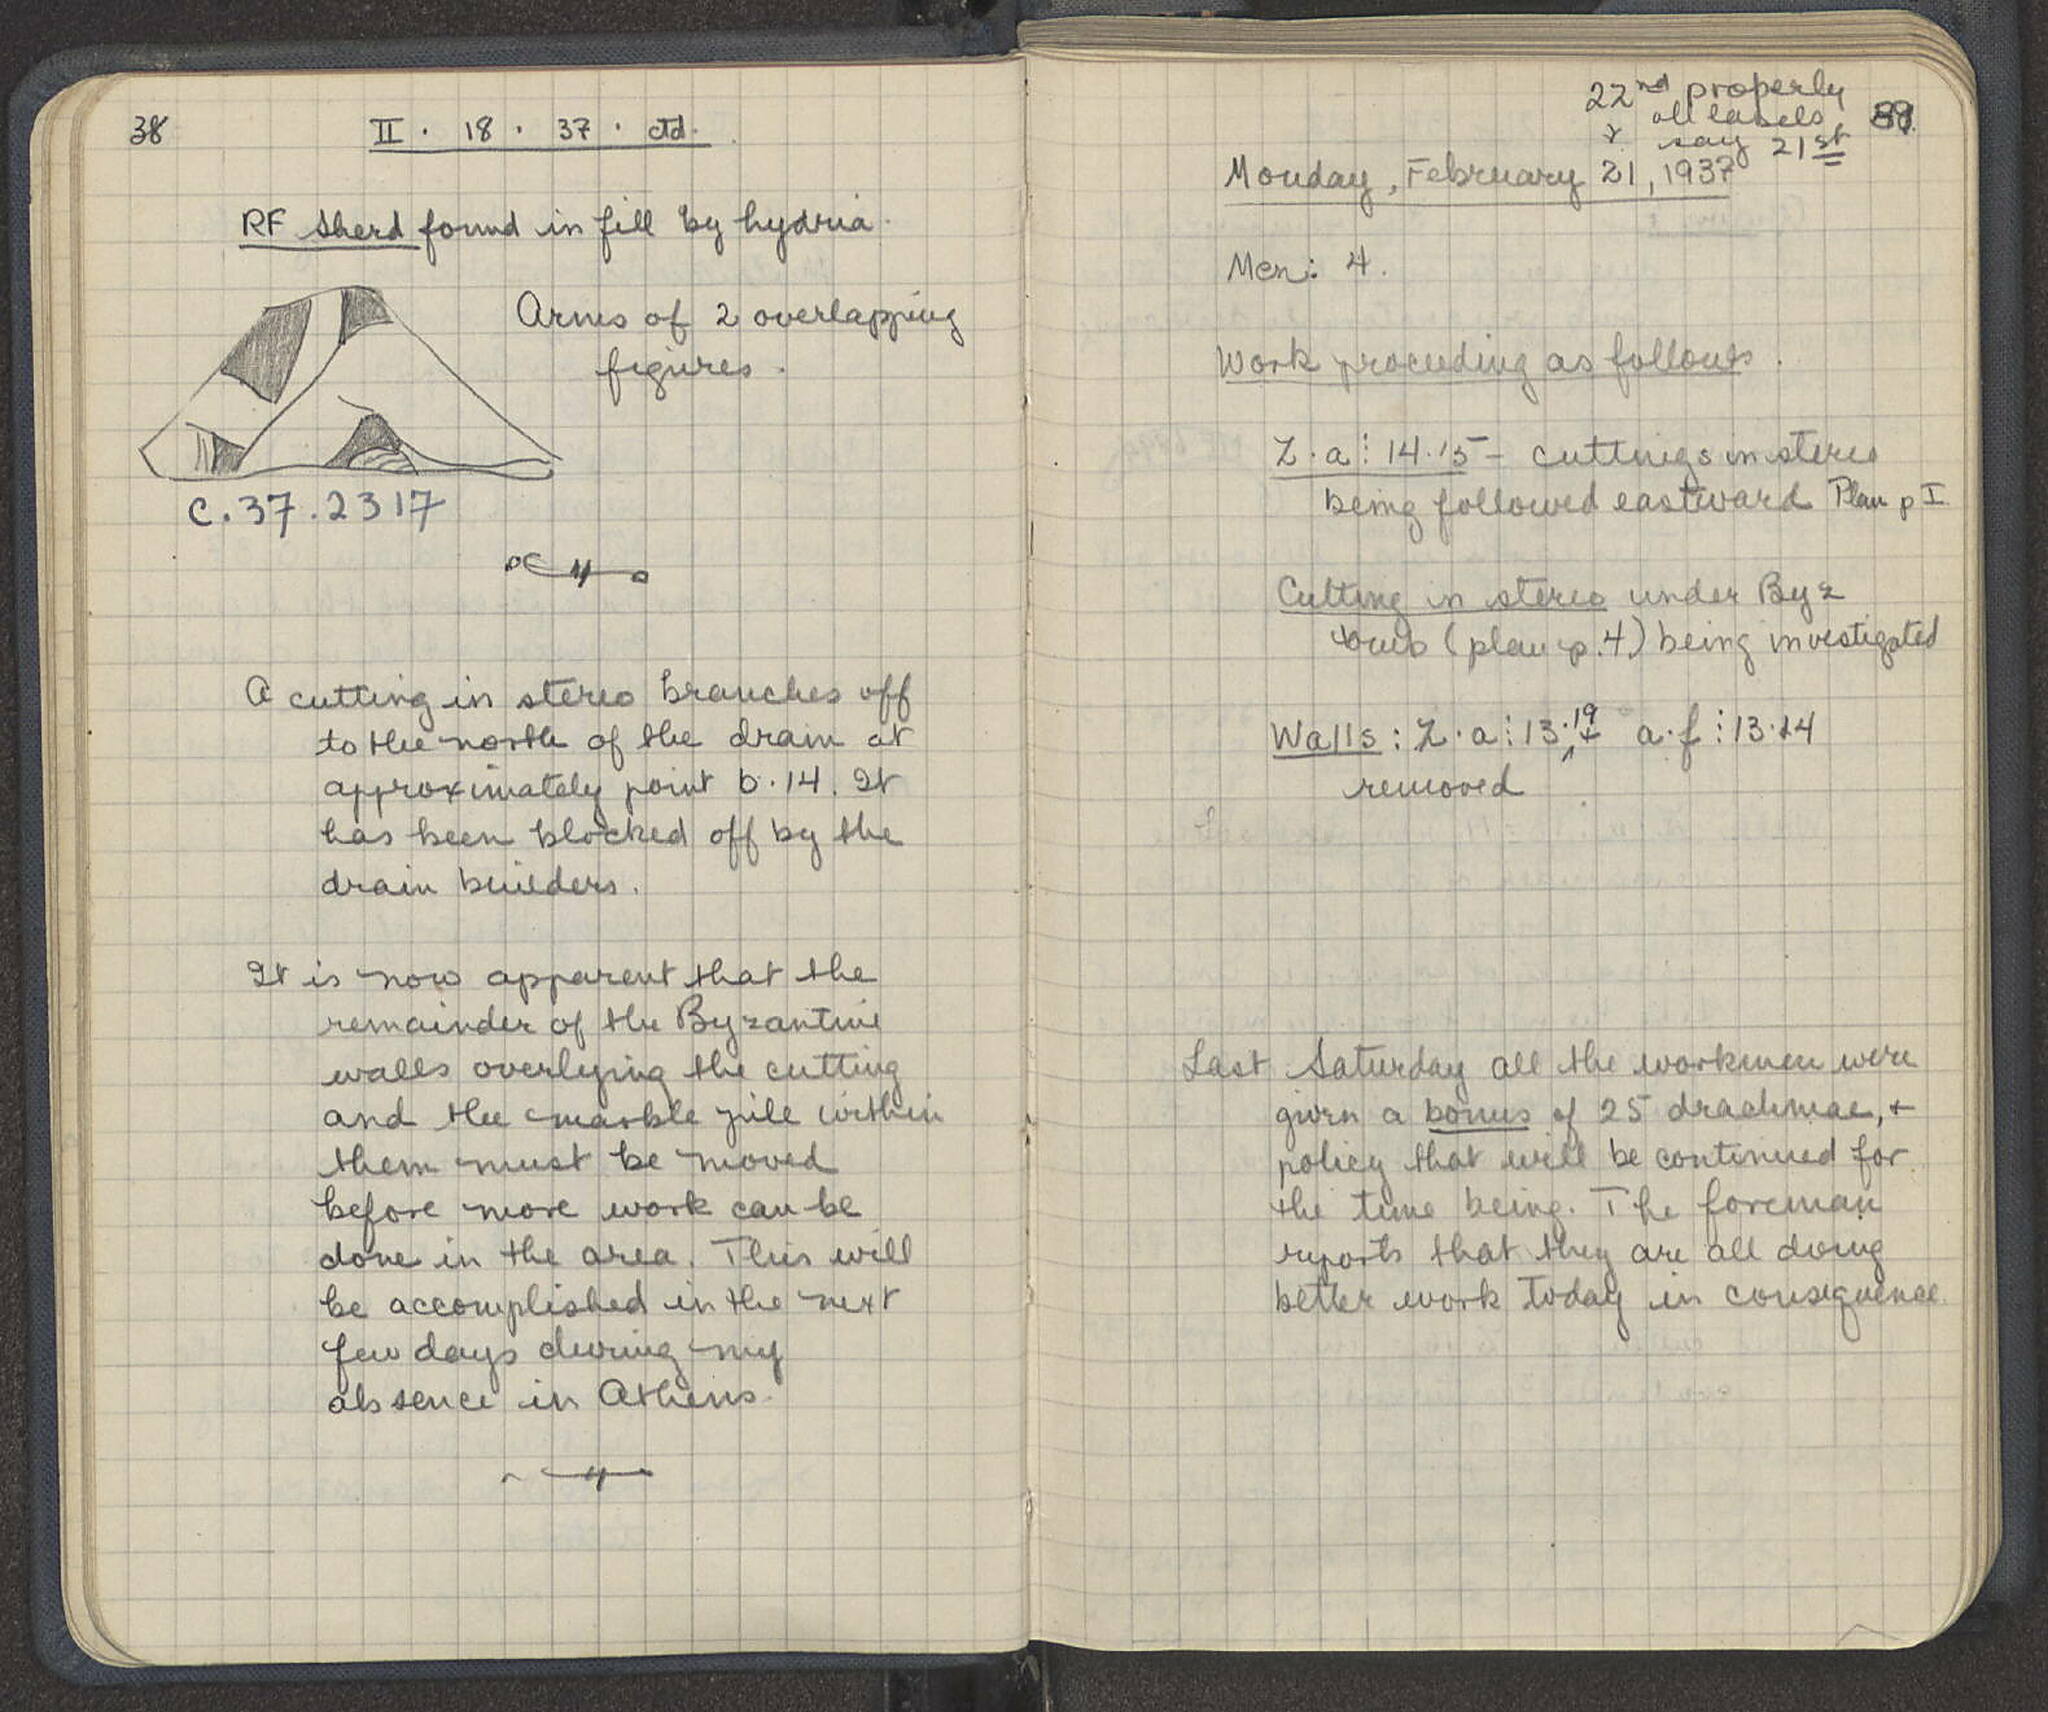 38
II · 18 · 37 · ctd.
RF sherd found in fill by hydria.
Arms of 2 overlapping
figures.
C.37.2317
A cutting in stereo branches off
to the north of the drain at
approximately point b·14. It
has been blocked off by the
drain builders.
It is now apparent that the
remainder of the Byzantine
walls overlying the cutting
and the marble pile within
them must be moved
before more work can be
done in the area. This will
be accomplished in the next
few days during my
absence in Athens.
22nd properly
all labels
say 21st
Monday, February 21, 1937
Men: 4.
Work proceeding as follows.
Z·a⋮14·15 – cuttings in stereo
being followed eastward Plan p I
Cutting in stereo under Byz
tomb (plan p. 4) being investigated
Walls: Z·a⋮13·19 + a·f⋮13·14
removed
Last Saturday all the workmen were
given a bonus of 25 drachmae, +
policy that will be continued for
the time being. The foreman
reports that they are all doing
better work today in consequence.